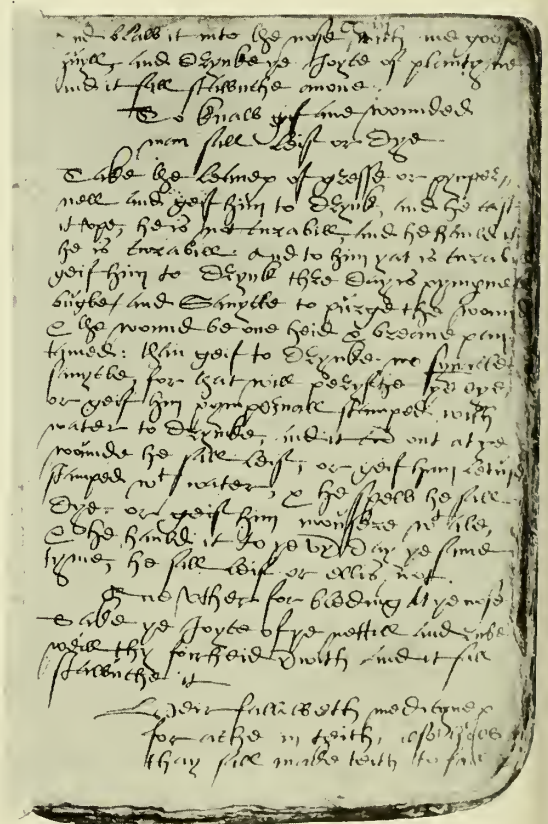 and blaw it into the nose with ane goos
quyll, and Drynke ye Joyce of plantyne
and it sall stawnche anone.
To knaw gif ane wounded
man sall leif or Dye
Take the letwes of gresse or pymper,,
nell and geif him to Drynk, and he cast
it wpe, he is not curabill, and he hauld it
he is curabill. And to him yat is curabi
geif him to Drynk thre Dayis pympne
bugle, and Sanycle to purge the wound
the wound be one heid & breane pan
tamed: than geif to Drynke no
sanycle, for that will perysche ye eye,
or geif him pympernall stamped with
water to Drynke, and it out at ye
wounde he sall leif, or geif him letuse
stamped wt water, & he spew he sall
Dye. or geif him mousere wt aile,
& he hauld it to ye Day ye same
tyme, he sall leif or ellis not.
Ane wther for bleding at ye nose
Take ye Joyce of ye nettill and rube
weill thy forheid with and it sall
stawnche it
Heir falloweth medicynes
for ache in teith, also how
thay sall make teith to fall